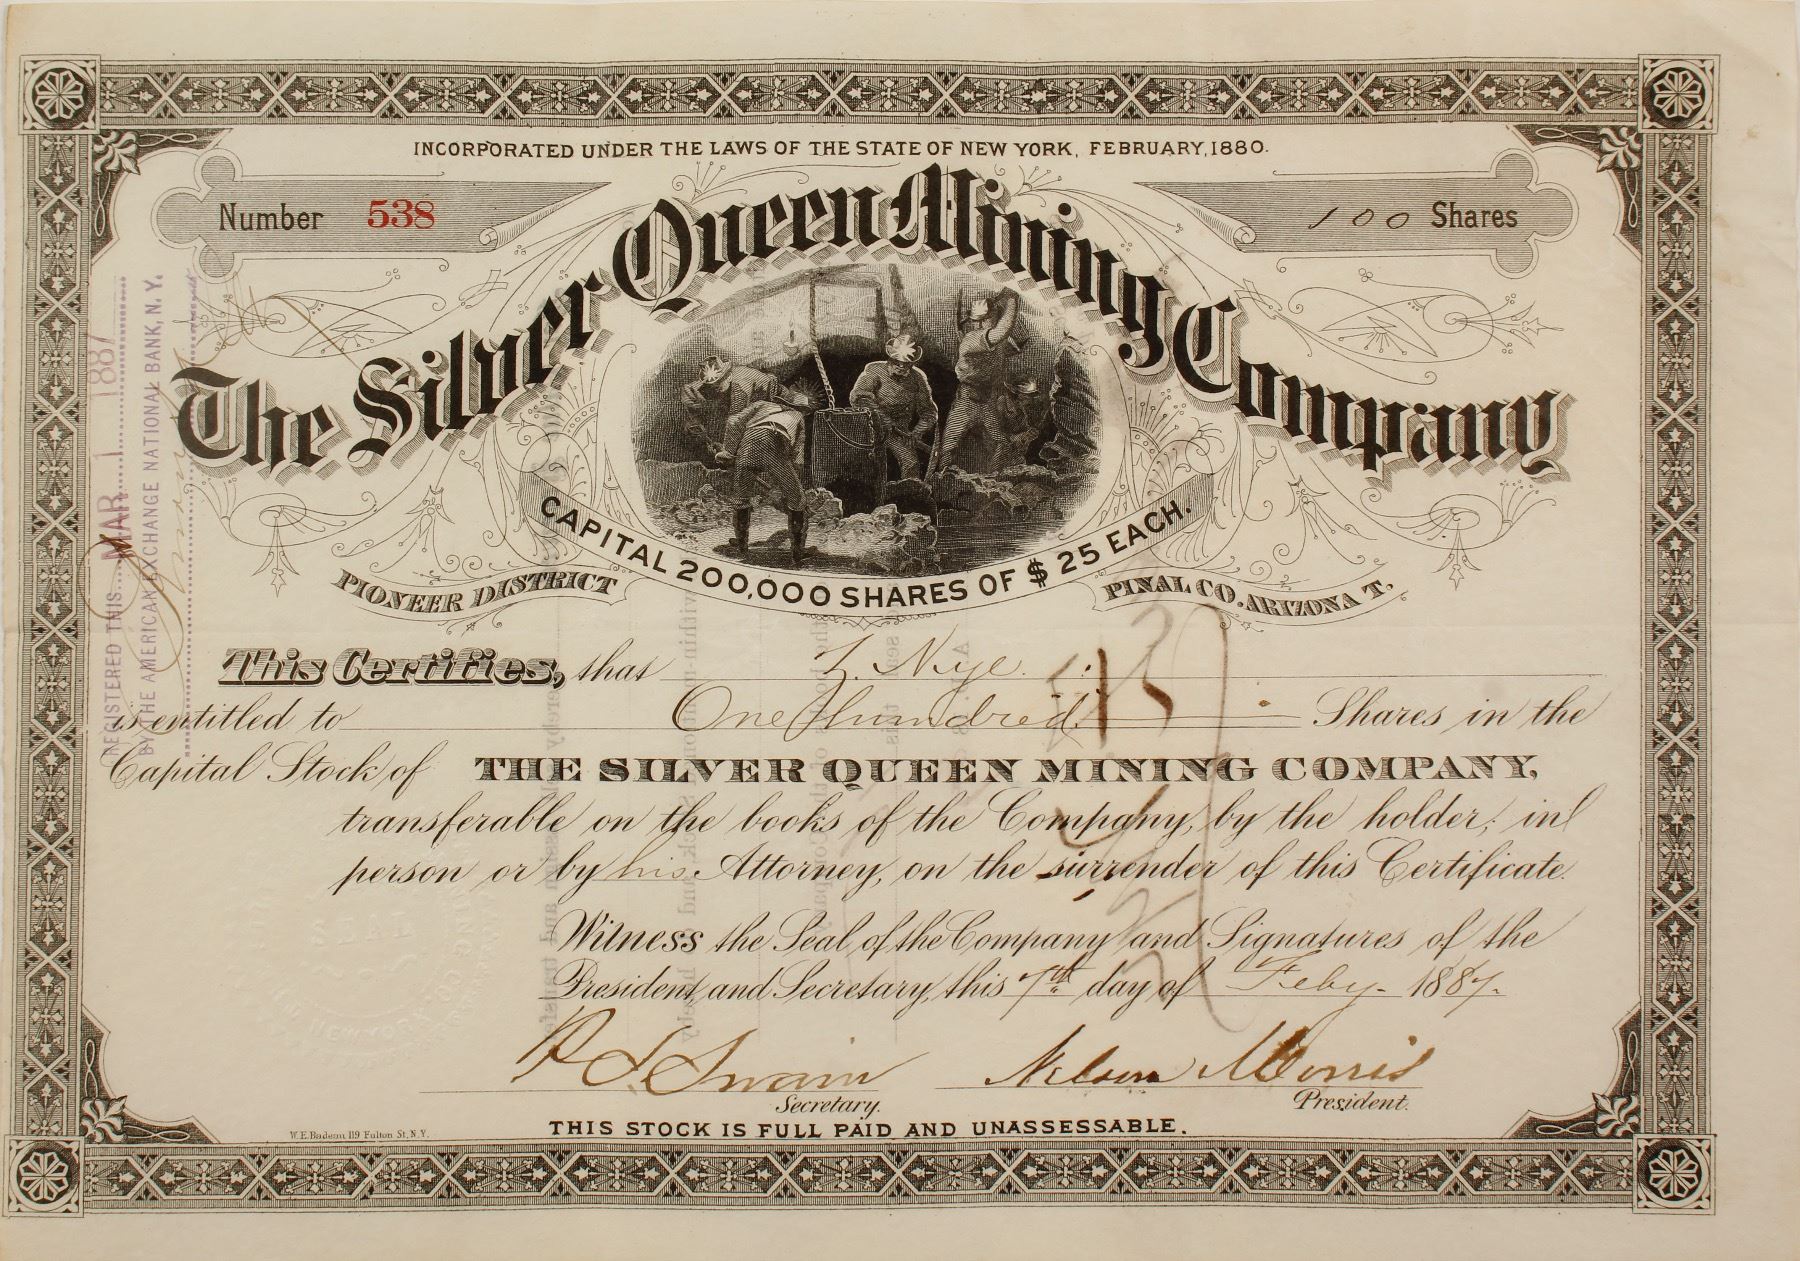 INCORPORATED UNDER THE LAWS OF THE STATE OF NEW YORK, FEBRUARY, 1880.
Number 538
100 Shares
The Silver Queen Mining Company
CAPITAL 200,000 SHARES OF $25 EACH.
PIONEER DISTRICT
PINAL CO. ARIZONA T.
This Certifies, that Z. Nye
is entitled to One Hundred Shares in the
Capital Stock of THE SILVER QUEEN MINING COMPANY,
transferable on the books of the Company, by the holder, in
person or by his Attorney, on the surrender of this Certificate.
Witness the Seal of the Company and Signatures of the
President and Secretary, this 7th day of Feby. 1887.
Nelson Morris
Secretary.
President.
W.E. Badeau 119 Fulton St, N.Y.
THIS STOCK IS FULL PAID AND UNASSESSABLE.
REGISTERED THIS MAR 1 1887
BY THE AMERICAN EXCHANGE NATIONAL BANK, N.Y.